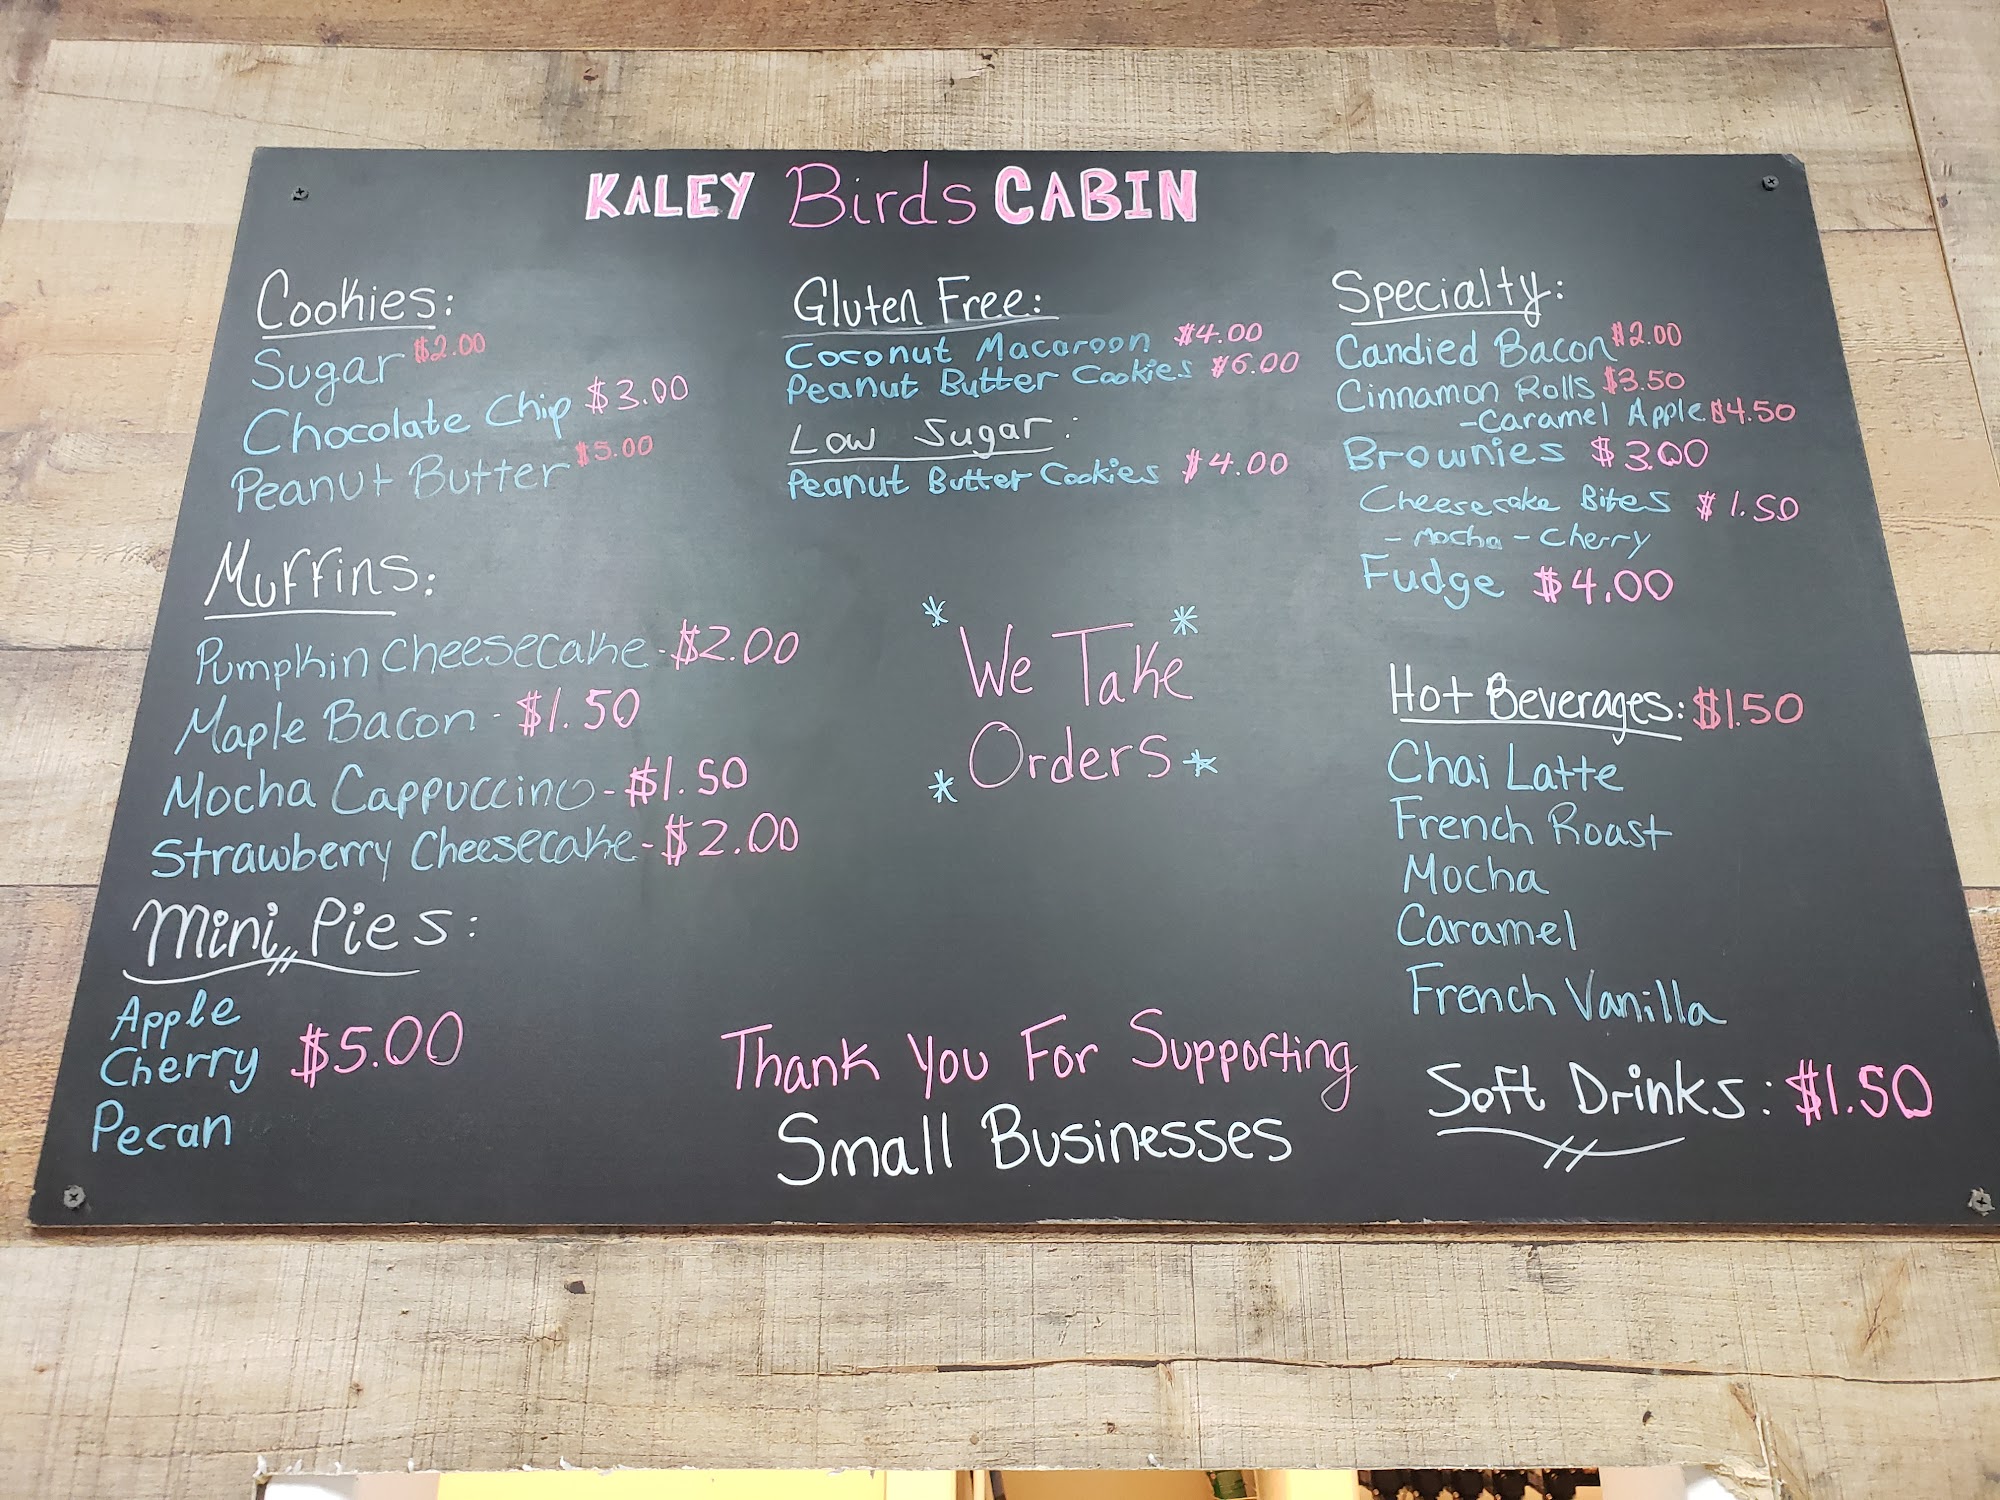 KALEY Birds CABIN
Cookies:
Sugar $2.00
Chocolate Chip $3.00
Peanut Butter $5.00
Muffins:
Pumpkin Cheesecake - $2.00
Maple Bacon - $1.50
Mocha Cappuccino - $1.50
Strawberry Cheesecake - $2.00
Mini Pies:
Apple
Cherry $5.00
Pecan
Gluten Free:
Coconut Macaroon $4.00
Peanut Butter Cookies $6.00
Low Sugar:
Peanut Butter Cookies $4.00
* We Take *
* Orders *
Thank You For Supporting
Small Businesses
Specialty:
Candied Bacon $2.00
Cinnamon Rolls $3.50
- Caramel Apple $4.50
Brownies $3.00
Cheesecake Bites $1.50
- Mocha - Cherry
Fudge $4.00
Hot Beverages: $1.50
Chai Latte
French Roast
Mocha
Caramel
French Vanilla
Soft Drinks: $1.50